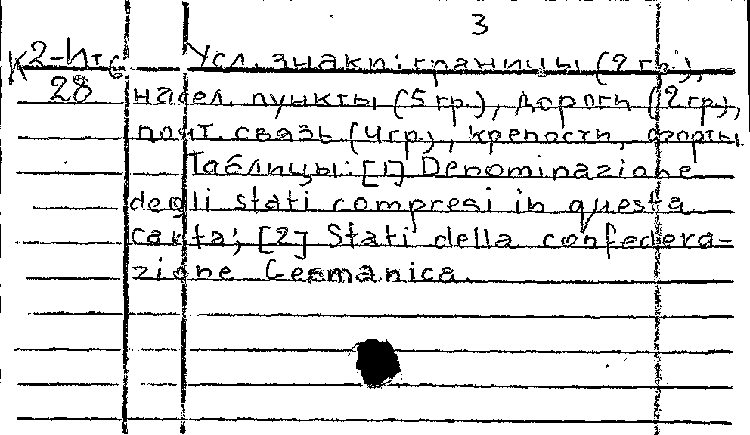 3
К 2-Ит6 Усл. знаки: границы (2 гр.),
28 насел. пункты (5 гр.), дороги (2 гр.),
почт. связь (4 гр.), крепости, форты.
Таблицы: [1] Denominazione
degli stati compresi in questa
carta; [2] Stati della confedera-
zione Germanica.